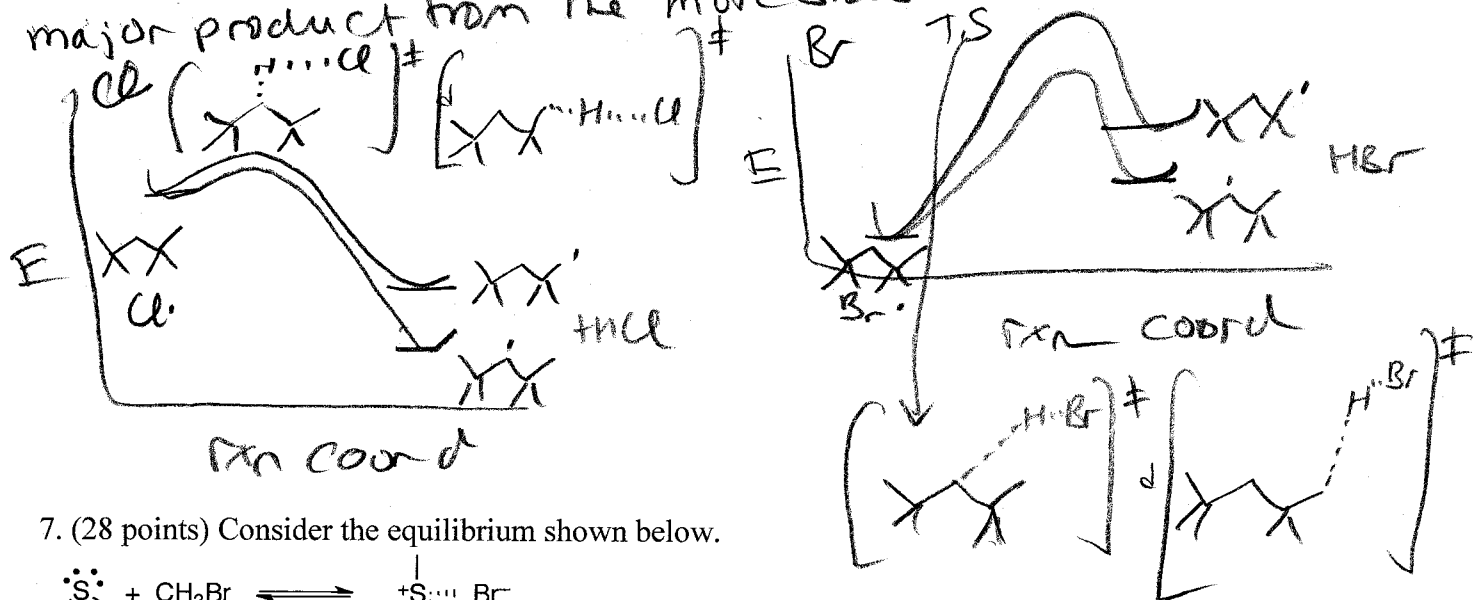 major product from the more
Cl
H····Cl
‡
H····Cl
‡
E
Cl·
+HCl
rxn coord
Br
T.S
E
HBr
Br·
rxn coord
H··Br
‡
H··Br
‡
7. (28 points) Consider the equilibrium shown below.
S + CH3Br ⇌ +S Br−